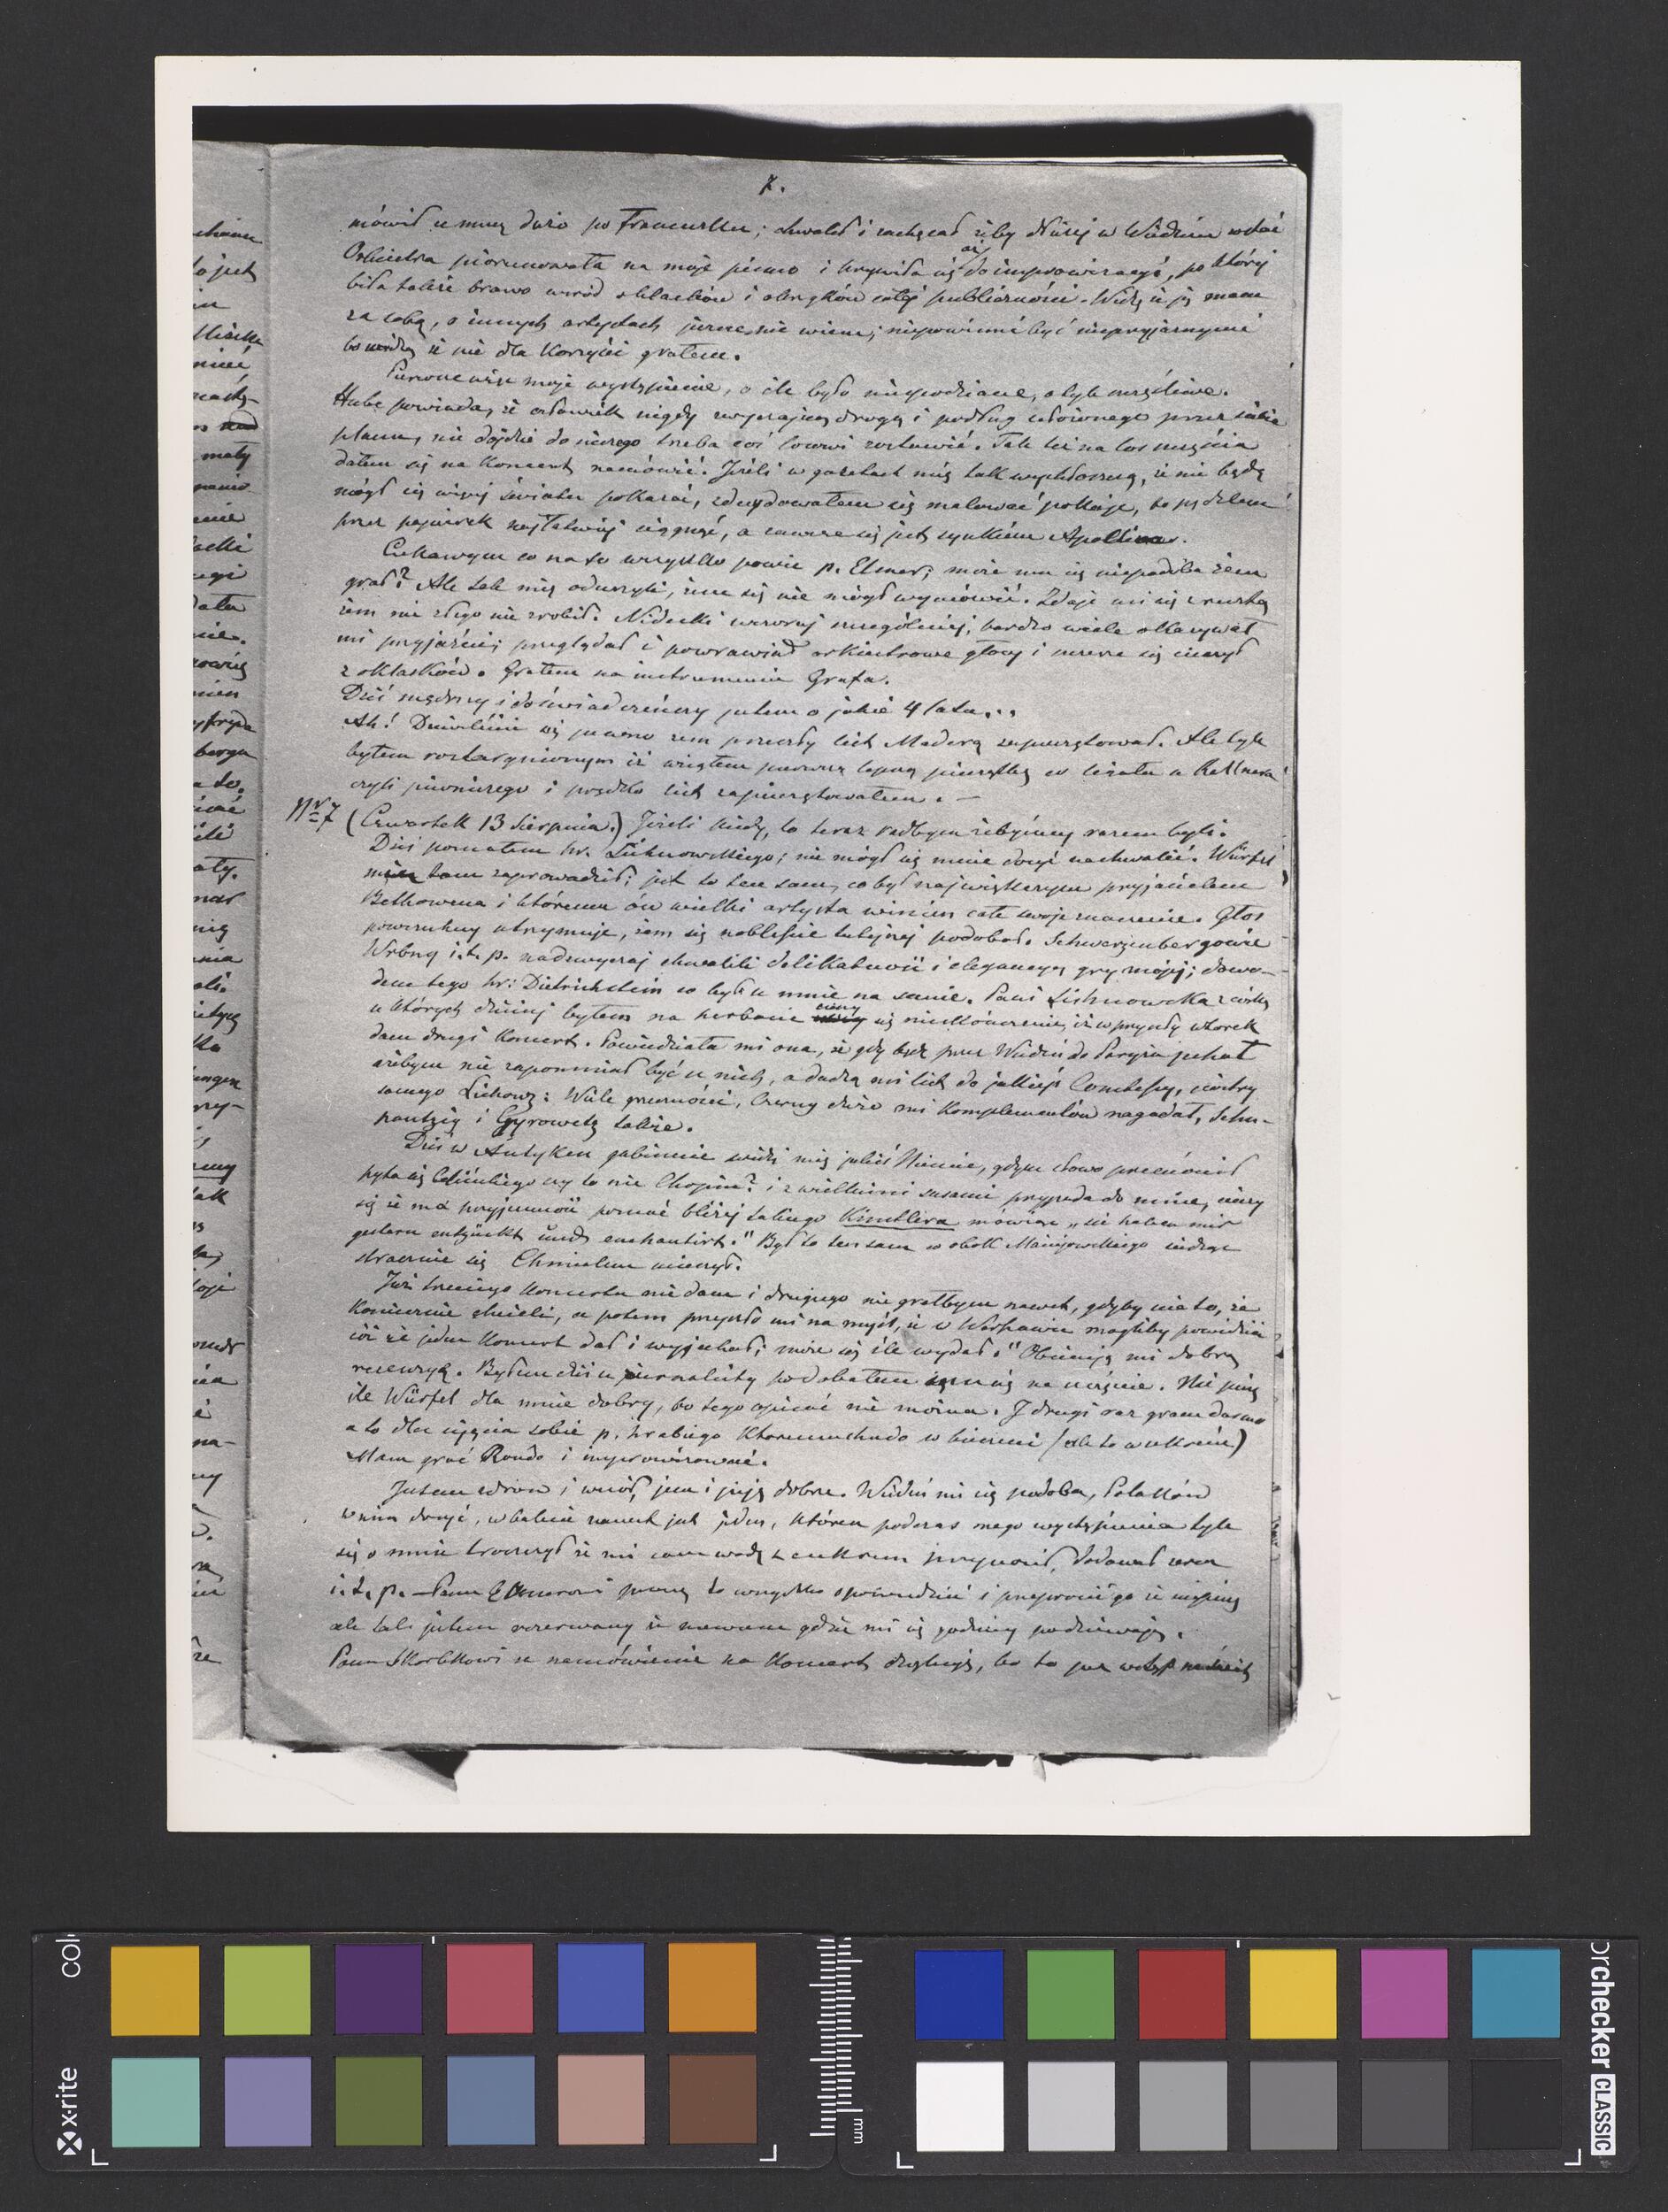 7.
mówił ze mną dużo po Francusku; chwalił i zachęcał żeby dłużej w Wiedniu zostać
Orkiestra piorunowała na moje pismo i krzywiła się aż do improwizacyi, po której
biła także brawo wśród oklasków i okrzyków całej publiczności. Widzę że ją mam
za sobą, o innych artystach jeszcze nie wiem; niepowinni być nieprzyjaznymi
bo widzą że nie dla korzyści grałem.
Pierwsze więc moje wystąpienie, o ile było niespodziane, o tyle szczęśliwe.
Hube powiada, że człowiek nigdy zwyczajną drogą i podług ułożonego przez siebie
planu, nie dojdzie do niczego trzeba coś losowi zostawić. Tak też na los szczęścia
dałem się na Koncert namówić. Jeżeli w gazetach mię tak wychłoszczą, że nie będę
mógł się więcej światu pokazać, zdecydowałem się malować pokoje, bo pędzlem
przez papierek najłatwiej ciągnąć, a zawsze się jest synkiem Apollina.
Ciekawym co na to wszystko powie p. Elsner; może mu się niepodoba żem
grał? Ale tak mię oduczyli, żem się nie mógł wymówić. Zdaje mi się zresztą
żem nic złego nie zrobił. Nidecki wczoraj szczególniej, bardzo wiele okazywał
mi przyjaźni; przeglądał i poprawiał orkiestrowe głosy i szczerze się cieszył
z oklasków. Grałem na instrumencie Grafa.
Dziś mądrzy i doświadczeńszy jestem o jakie 4 lata...
Ah! Dziwiliście się pewno żem przeszły list Maderą zapieczętował. Ale tyle
byłem roztargnionym iż wziąłem pierwszą lepszą pieczątkę ze światu u Kellnera
czyli piwnicznego i prędko list zapieczętowałem. —
Nr 7 (Czwartek 13 Sierpnia.) Jeżeli kiedy, to teraz radbym żebyśmy razem byli.
Dziś poznałem hr. Lichnowskiego; nie mógł się mnie dosyć nachwalić. Würfel
mię tam zaprowadził; jest to ten sam, co był największym przyjacielem
Bethowena i któremu ów wielki artysta winien całe swoje znaczenie. Głos
powszechny utrzymuje, żem się noblessie tutejszej podobał. Schwarzenbergowie
Wrbny i.t.p. nadzwyczaj chwalili delikatność i elegancyą gry mojej; dowo-
dem tego hr: Dietrichstein co był u mnie na scenie. Pani Lichnowska z córką
u których dzisiaj byłem na herbacie cieszy się nieskończenie, iż w przyszły wtorek
dam drugi Koncert. Powiedziała mi ona, że gdy będę przez Wiedeń do Paryża jechał
ażebym nie zapomniał być u nich, a dadzą mi list do jakiejś Comtessy, siostry
samego Lichows: Wiele grzeczności, Czerny dużo mi Komplementów nagadał, Schu-
pantzig i Gyrowetz także.
Dziś w Antyken gabinecie widzi mię jakiś Niemie, gdym słowo przemówił
pyta się Celińskiego czy to nie Chopin? i z wielkimi susami przypada do mnie, cieszy
się że ma przyjemność poznać bliżej takiego Künstlera mówiąc „sie haben mir
gestern entzückt und enchantirt." Był to ten sam co obok Maciejowskiego siedząc
strasznie się Chmielem cieszył.
Już trzeciego koncertu nie dam i drugiego nie grałbym nawet, gdyby nie to, że
koniecznie chcieli, a potem przyszło mi na myśl, iż w Warszawie mogliby powiedzieć
cóż że jeden Koncert dał i wyjechał; może się źle wydał." Obiecują mi dobrą
recenzyą. Byłem dziś u żurnalisty podobałem mu się na szczęście. Nie piszę
ile Würfel dla mnie dobry, bo tego opisać nie można. I drugi raz gram darmo
a to dla ujęcia sobie p. hrabiego któremu chudo w kieszeni (ale to w sekrecie)
Mam grać Rondo i improwizować.
Jestem zdrów i wesół, jem i piję dobrze. Wiedeń mi się podoba, Polaków
w nim dosyć, w balecie nawet jest jeden, który podczas mego wystąpienia tyle
się o mnie troszczył że mi sam wodę z cukrem przynosił, dodawał serca
i.t.p. — Panu Elsnerowi proszę to wszystko opowiedzieć i przeprosić go że niepiszę
ale tak jestem rozerwany że niewiem gdzie mi się godziny podziewają.
Panu Skarbkowi za namówienie na Koncert dziękuję, bo to już wstęp na świat